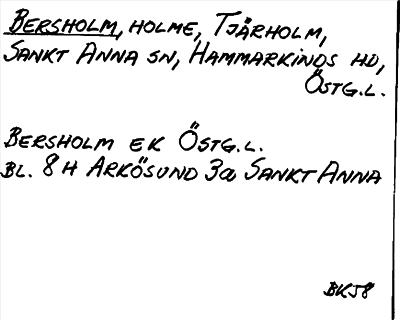 BERSHOLM, HOLME, TJÄRHOLM,
SANKT ANNA SN, HAMMARKINDS HD,
ÖSTG.L.
BERSHOLM EK ÖSTG.L.
BL. 8 H ARKÖSUND 3a SANKT ANNA
BKJ8